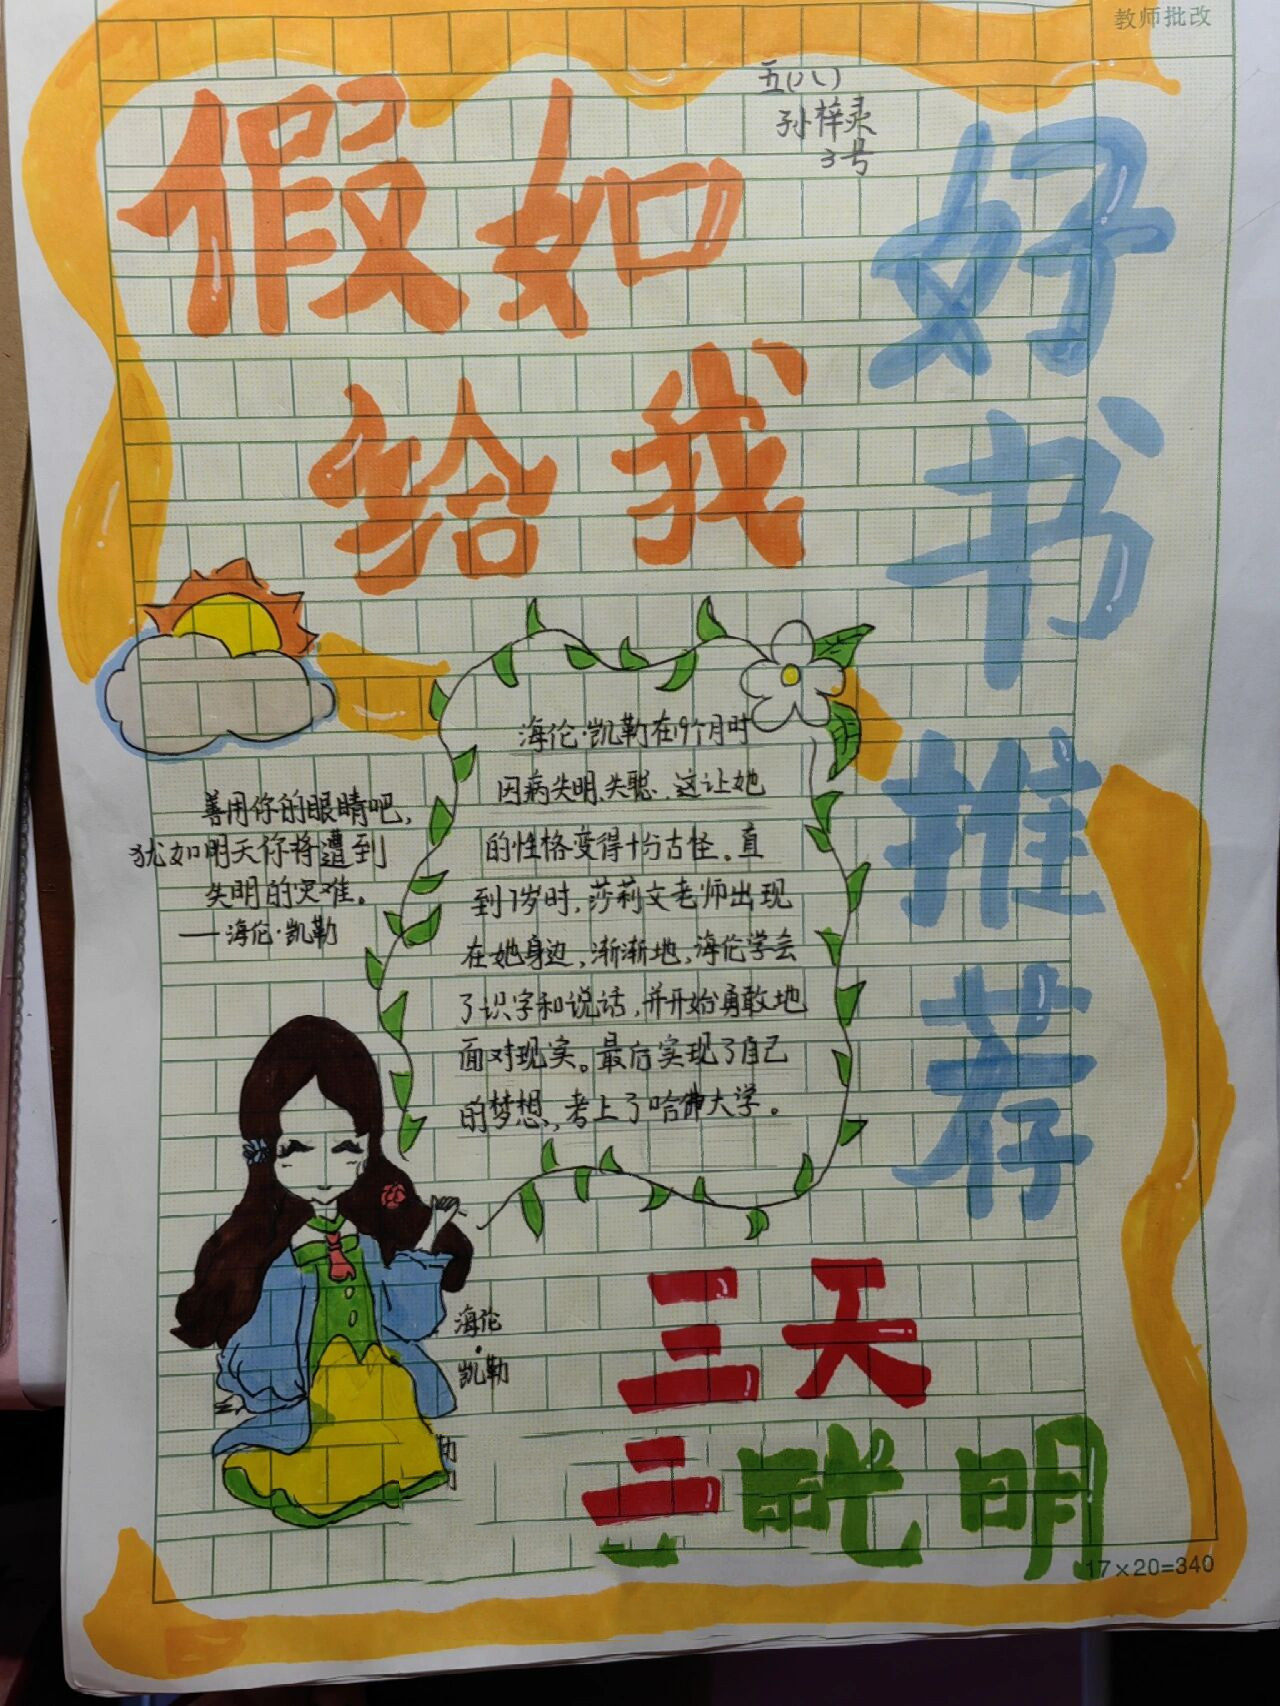 教师批改
五(八)
孙梓灵
3号
假如
给我
三天
光明
好书推荐
善用你的眼睛吧，
犹如明天你将遭到
失明的灾难。
——海伦·凯勒
海伦·凯勒在19个月时
因病失明、失聪，这让她
的性格变得十分古怪。直
到7岁时，莎莉文老师出现
在她身边，渐渐地，海伦学会
了识字和说话，并开始勇敢地
面对现实。最后实现了自己
的梦想，考上了哈佛大学。
海伦
·
凯勒
17×20=340